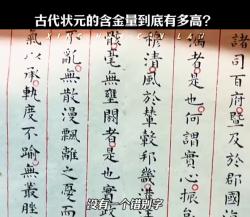 古代状元的含金量到底有多高?
諸司百府暨及於郡國
滿者是也何謂實心振
穆清風於輦轂邦畿
骸毫無壅閼者是也實
不亂無散漫飄離之憂而
氣以承軌度不踰無叢脞
没有一个错别字